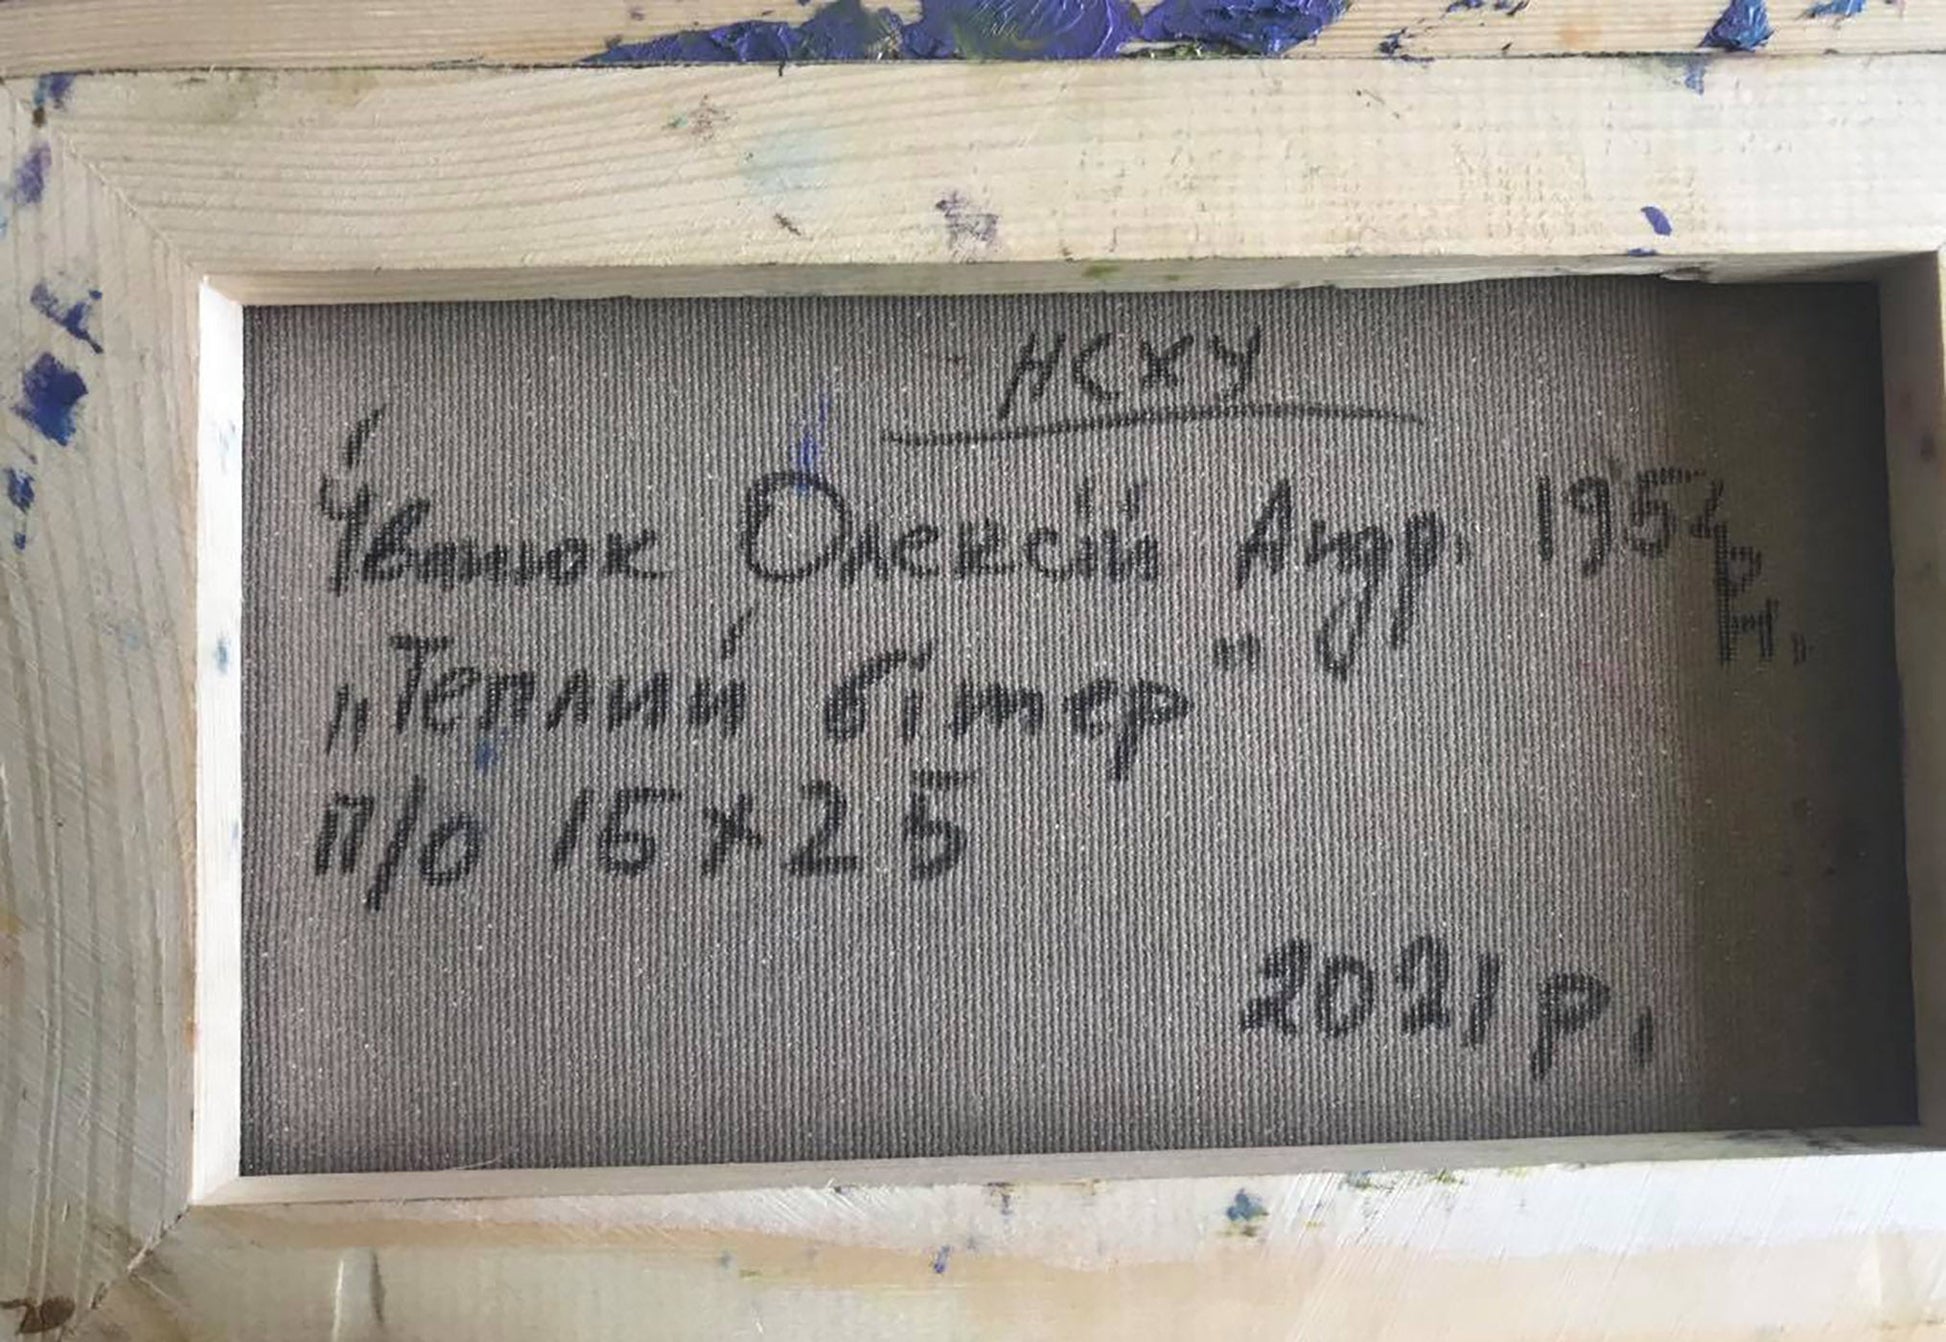 НСХУ
Чвнюк Олексій Андр. 1954
р.н.,
„Теплий вітер"
п/о 15х25
2021 р.